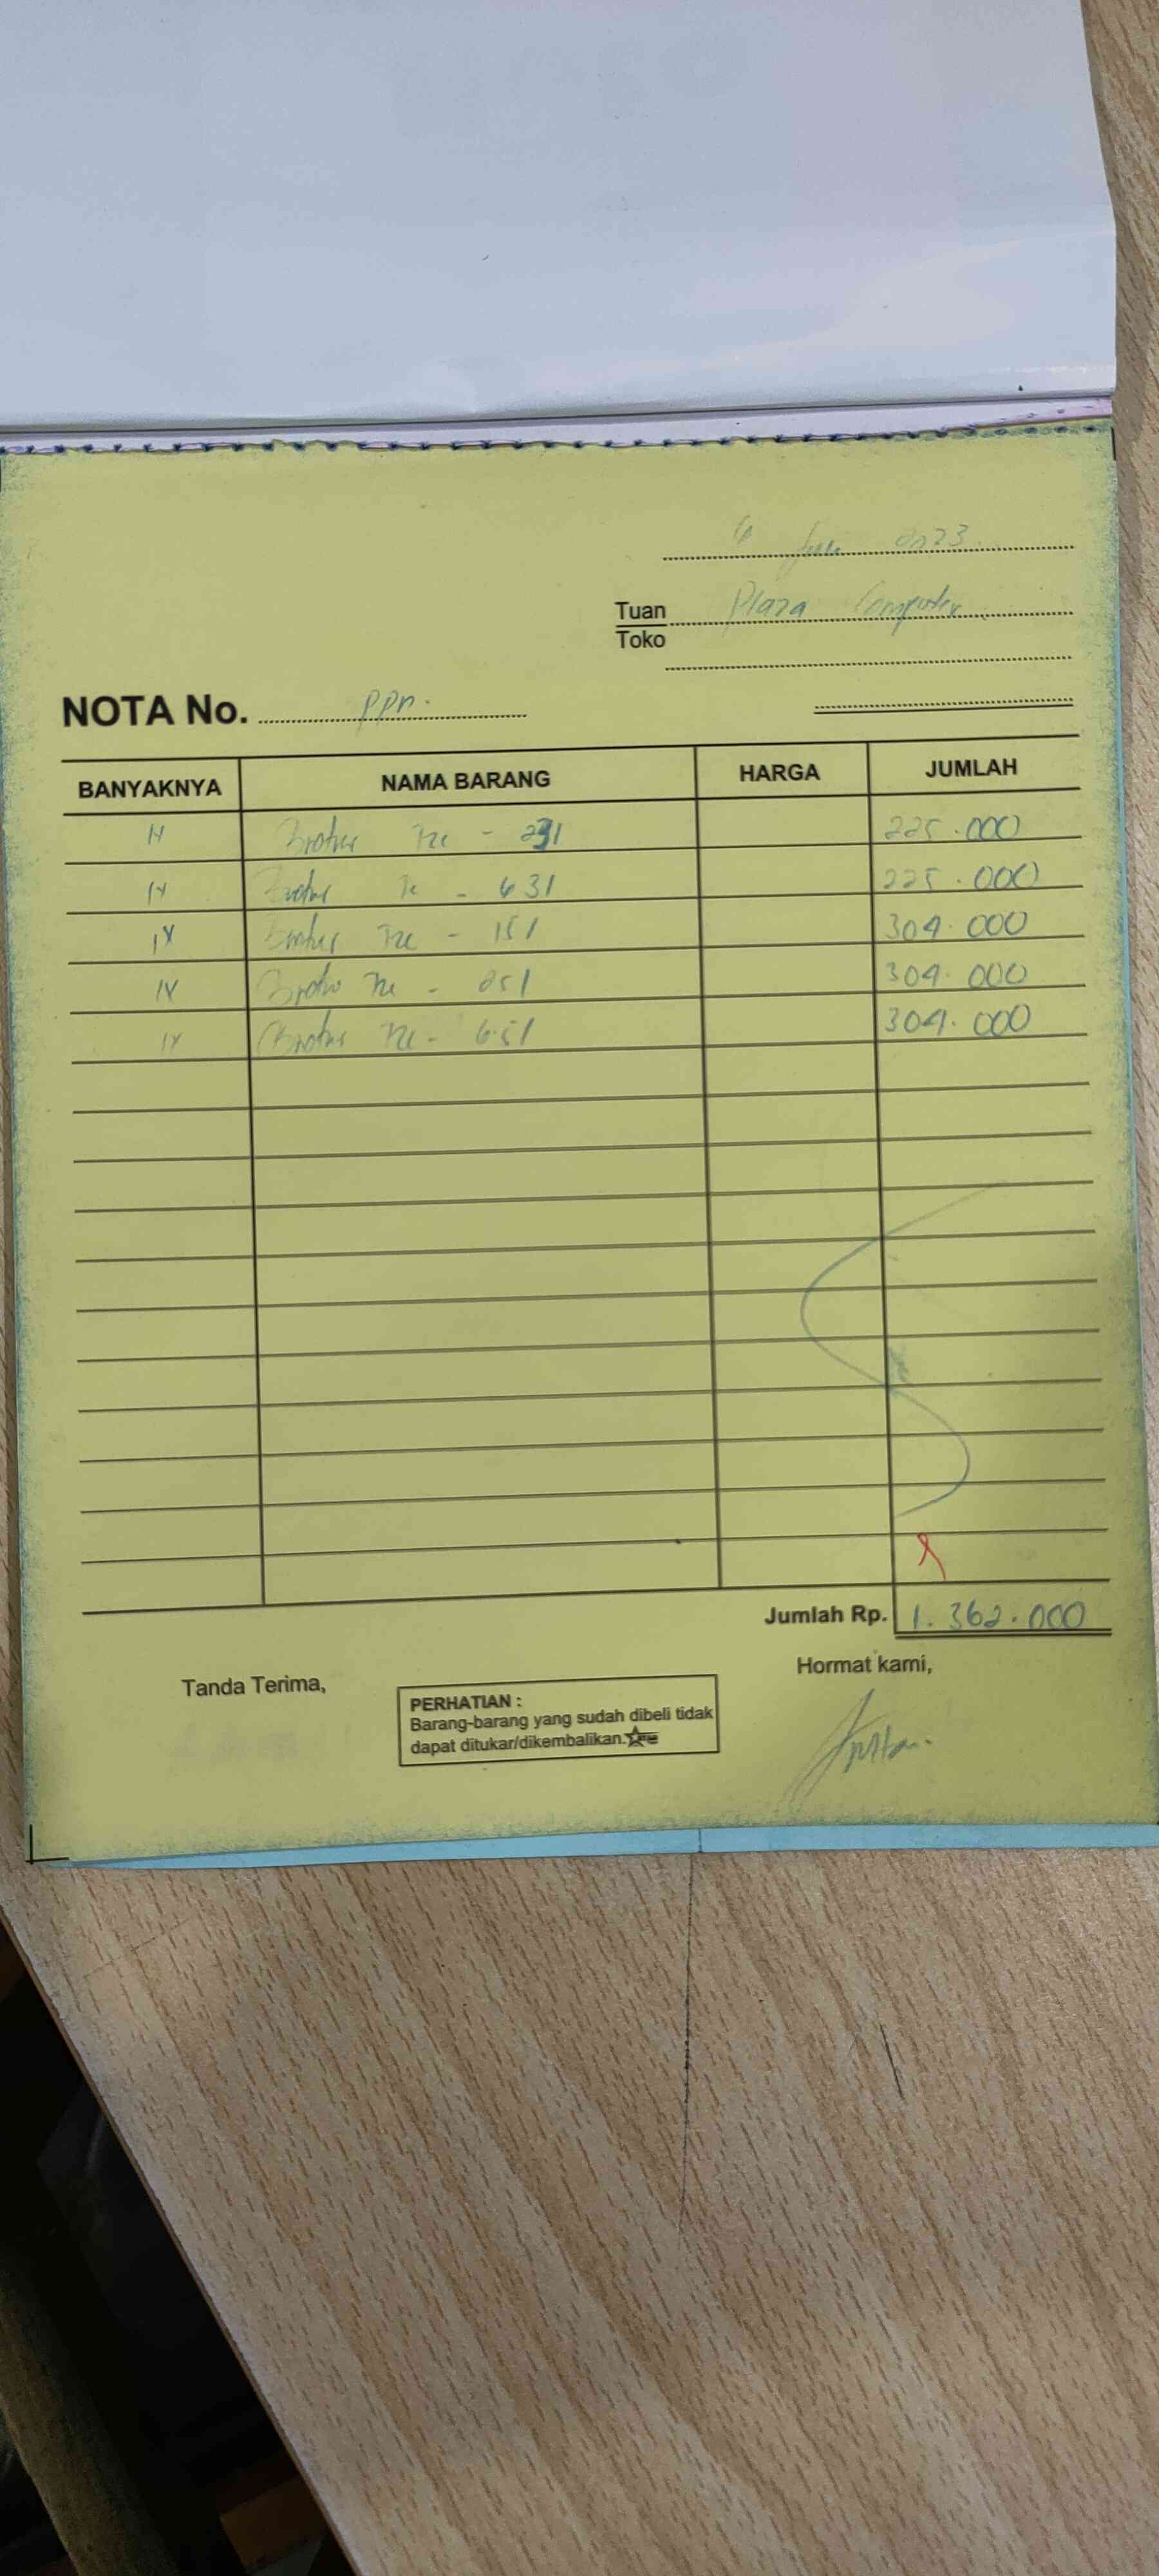 2023
Tuan Plaza Computer
Toko
NOTA No. ppn.
BANYAKNYA NAMA BARANG HARGA JUMLAH
Brother Tze - 231 225.000
Brother Tze - 631 225.000
Brother Tze - 151 304.000
Brother Tze - 251 304.000
Brother Tze - 651 304.000
Jumlah Rp. 1.362.000
Tanda Terima, Hormat kami,
PERHATIAN :
Barang-barang yang sudah dibeli tidak
dapat ditukar/dikembalikan.